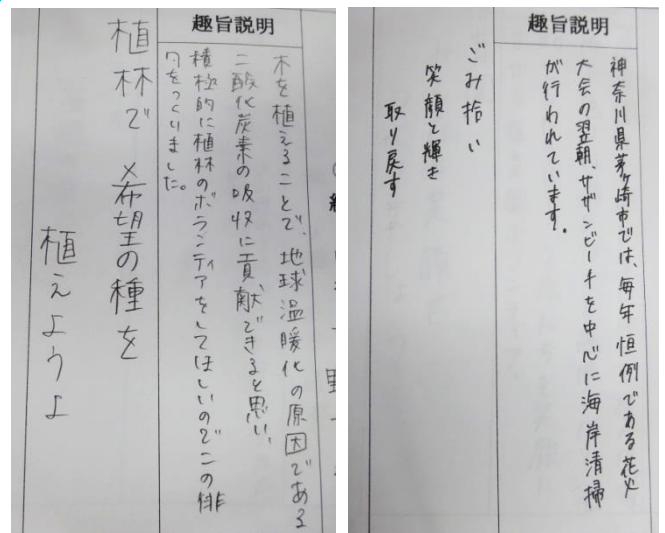 趣旨説明
木を植えることで、地球温暖化の原因である
二酸化炭素の吸収に貢献できると思い、
積極的に植林のボランティアをしてほしいのでこの俳
句をつくりました。
植林で 希望の種を
植えようよ
趣旨説明
神奈川県茅ヶ崎市では、毎年恒例である花火
大会の翌朝、サザンビーチを中心に海岸清掃
が行われています。
ごみ拾い
笑顔と輝き
取り戻す